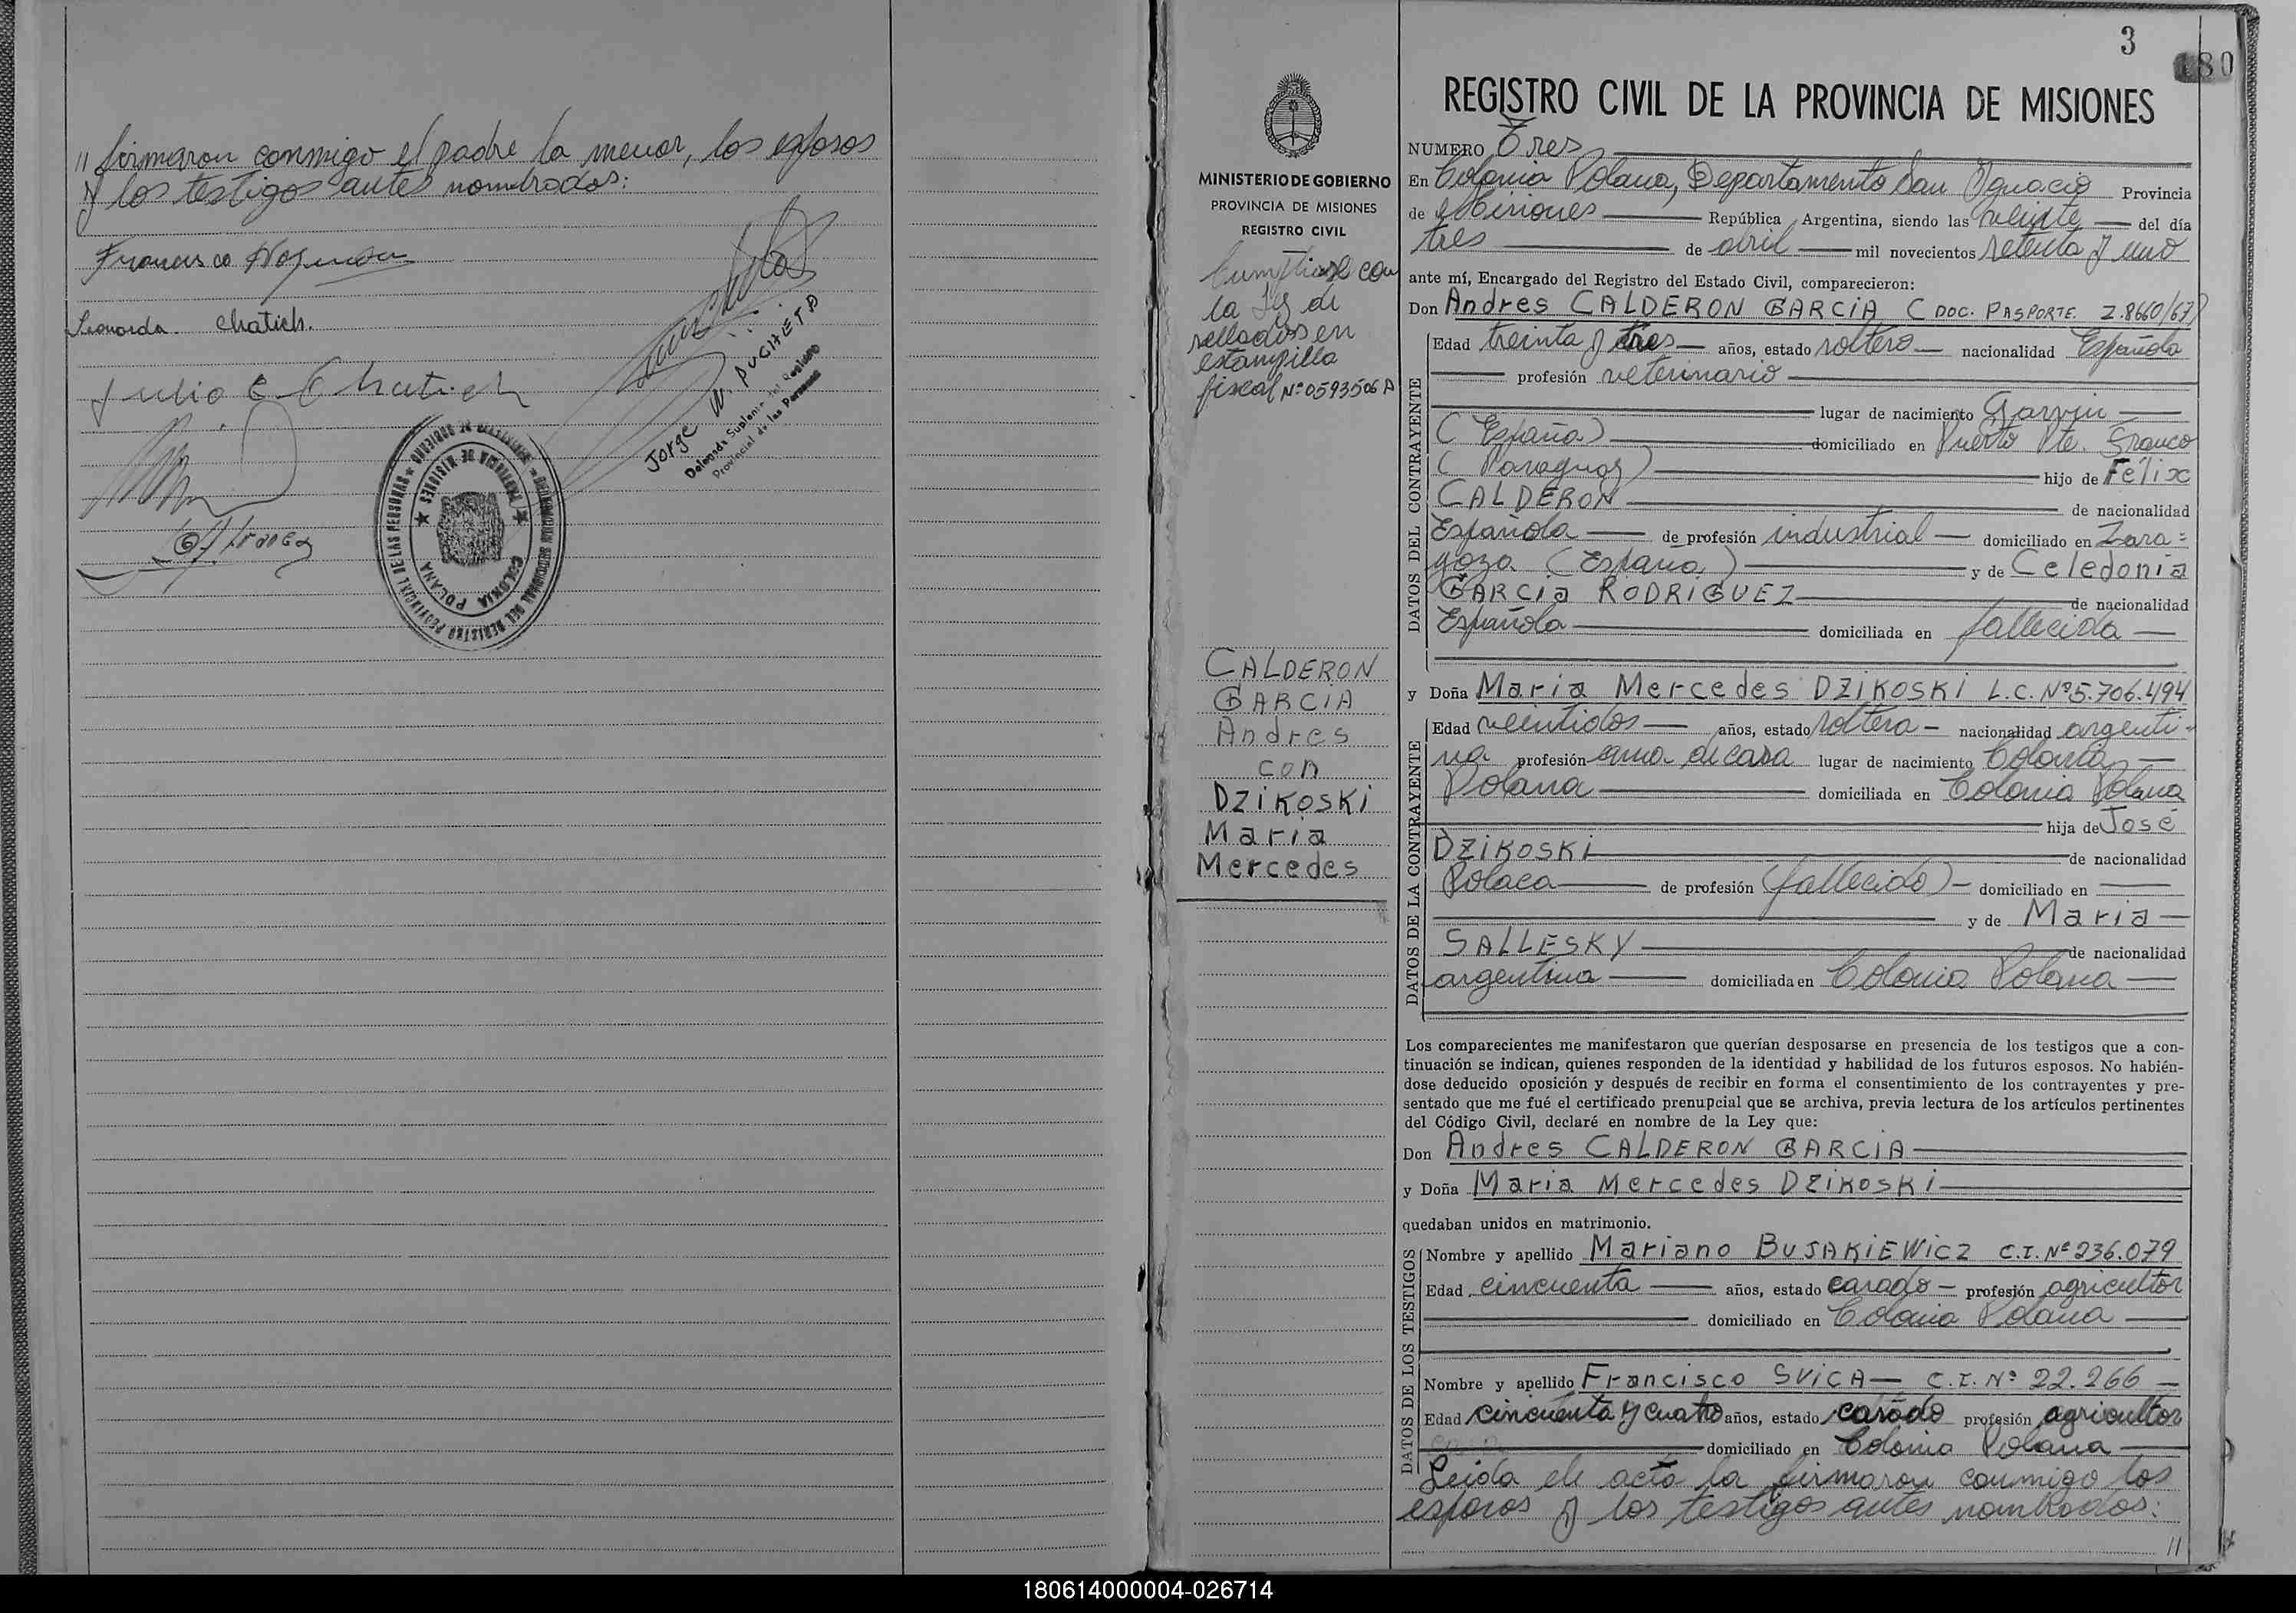 // firmaron conmigo el padre la menor, los esposos
y los testigos antes nombrados:
Francisco
Leonarda Chatich.
Julio C. Chatich
Jorge W. PUCHETA
Delegado Suplente del Registro
Provincial de las Personas
COLONIA POLANA
3
180
REGISTRO CIVIL DE LA PROVINCIA DE MISIONES
MINISTERIO DE GOBIERNO
PROVINCIA DE MISIONES
REGISTRO CIVIL
Cumpliose con
la Ley de
sellados en
estampilla
fiscal Nº 0593506 A
CALDERON
GARCIA
Andres
con
DZIKOSKI
Maria
Mercedes
NUMERO Tres
En Colonia Polana, Departamento San Ignacio Provincia
de Misiones República Argentina, siendo las veinte del día
tres de abril mil novecientos setenta y uno
ante mí, Encargado del Registro del Estado Civil, comparecieron:
Don Andres CALDERON GARCIA (DOC. PASPORTE. Z.8660/67)
DATOS DEL CONTRAYENTE
Edad treinta y tres años, estado soltero nacionalidad Española
profesión veterinario
lugar de nacimiento
(España) domiciliado en Puerto Pte. Franco
(Paraguay) hijo de Félix
CALDERON de nacionalidad
Española de profesión industrial domiciliado en Zara=
goza (España) y de Celedonia
GARCIA RODRIGUEZ de nacionalidad
Española domiciliada en fallecida
y Doña Maria Mercedes DZIKOSKI L.C. Nº 5.706.494
DATOS DE LA CONTRAYENTE
Edad veintidos años, estado soltera nacionalidad argenti-
na profesión ama de casa lugar de nacimiento Colonia
Polana domiciliada en Colonia Polana
hija de José
DZIKOSKI de nacionalidad
Polaca de profesión (fallecido) domiciliado en
y de Maria
SALLESKY de nacionalidad
argentina domiciliada en Colonia Polana
Los comparecientes me manifestaron que querían desposarse en presencia de los testigos que a con-
tinuación se indican, quienes responden de la identidad y habilidad de los futuros esposos. No habién-
dose deducido oposición y después de recibir en forma el consentimiento de los contrayentes y pre-
sentado que me fué el certificado prenupcial que se archiva, previa lectura de los artículos pertinentes
del Código Civil, declaré en nombre de la Ley que:
Don Andres CALDERON GARCIA
y Doña Maria Mercedes DZIKOSKI
quedaban unidos en matrimonio.
DATOS DE LOS TESTIGOS
Nombre y apellido Mariano BUJAKIEWICZ C.I. Nº 236.079
Edad cincuenta años, estado casado profesión agricultor
domiciliado en Colonia Polana
Nombre y apellido Francisco SVICA C.I. Nº 22.266
Edad cincuenta y cuatro años, estado casado profesión agricultor
domiciliado en Colonia Polana
Leida el acta la firmaron conmigo los
esposos y los testigos antes nombrados:
//
180614000004-026714